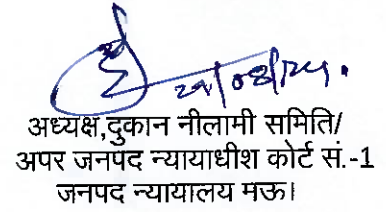 अध्यक्ष,दुकान नीलामी समिति/
अपर जनपद न्यायाधीश कोर्ट सं.-1
जनपद न्यायालय मऊ।